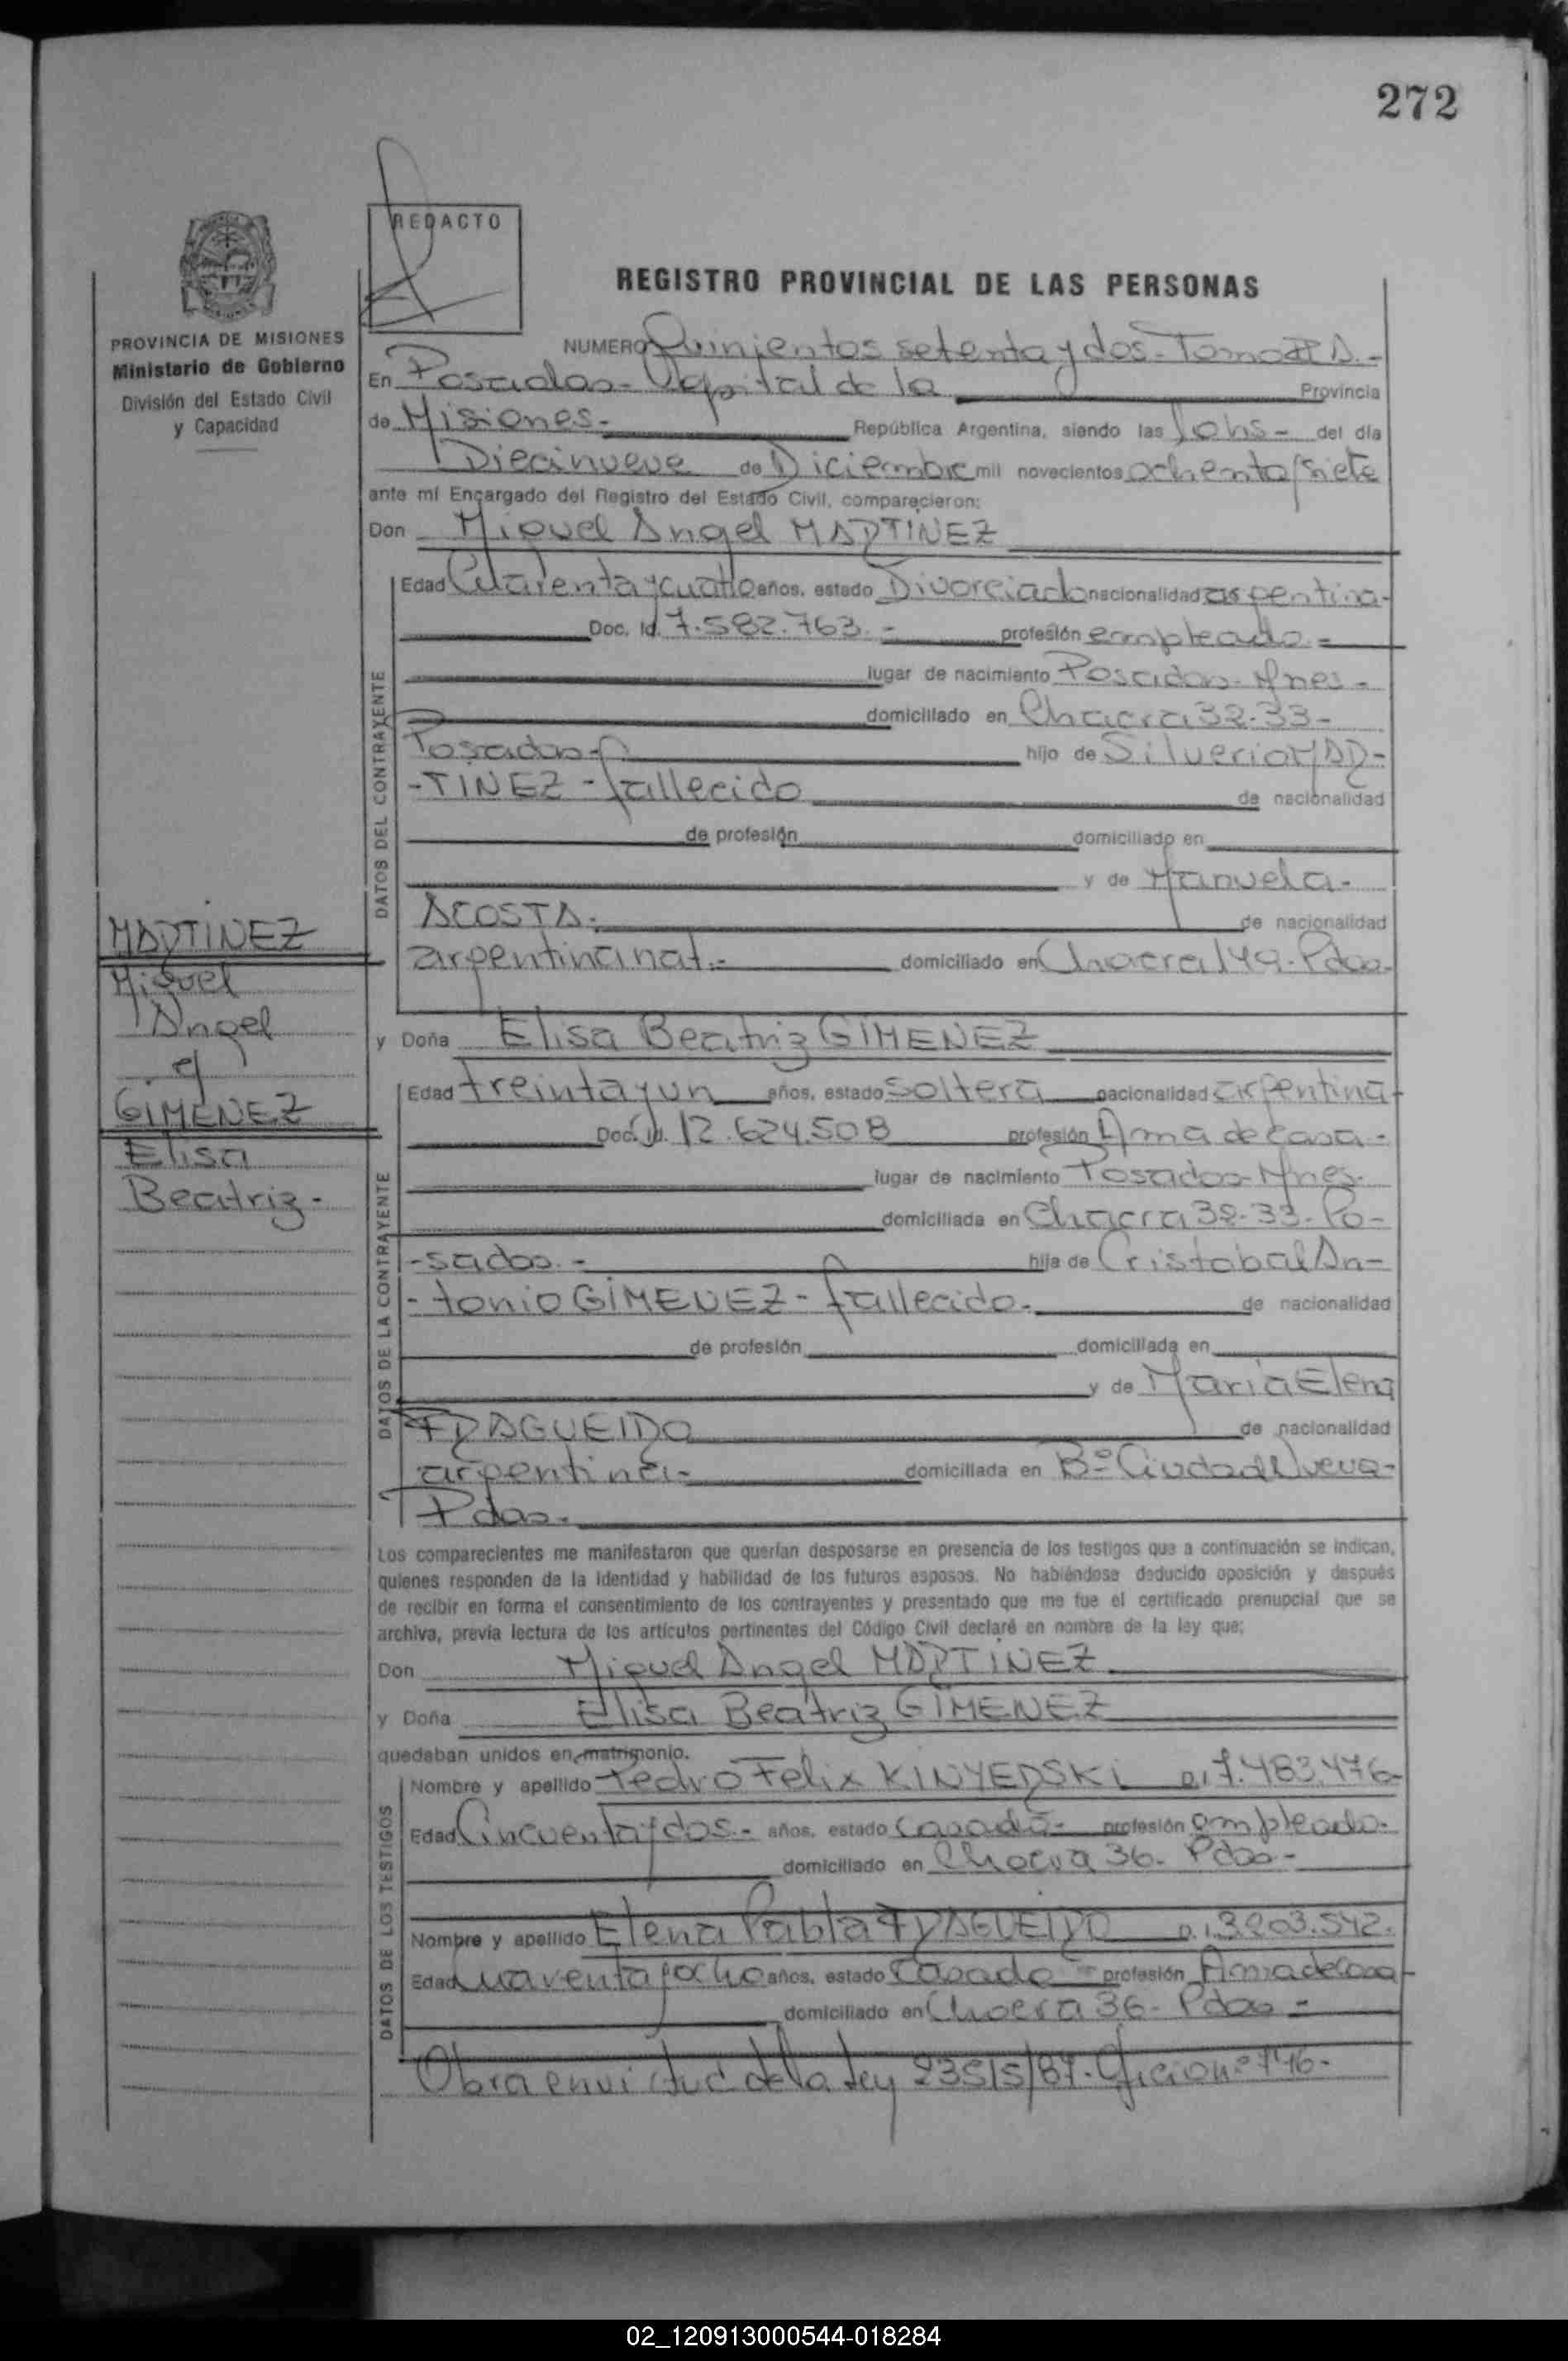 272
REDACTO
REGISTRO PROVINCIAL DE LAS PERSONAS
PROVINCIA DE MISIONES
Ministerio de Gobierno
División del Estado Civil
y Capacidad
NUMERO Quinientos setenta y dos - Tomo II A.-
En Posadas - Capital de la Provincia
de Misiones - República Argentina, siendo las 10hs - del día
Diecinueve de Diciembre mil novecientos ochenta y siete
ante mí Encargado del Registro del Estado Civil, comparecieron:
Don Miguel Angel MARTINEZ
DATOS DEL CONTRAYENTE
Edad Cuarenta y cuatro años, estado Divorciado nacionalidad argentina-
Doc. Id. 7.582.763.- profesión empleado.-
lugar de nacimiento Posadas - Mnes -
domiciliado en Chacra 32-33-
Posadas- hijo de Silverio MAR-
-TINEZ - fallecido de nacionalidad
de profesión domiciliado en
y de Manuela-
ACOSTA.- de nacionalidad
argentina nat.- domiciliado en Chacra 149 - Pdas.
MARTINEZ
Miguel
Angel
y
GIMENEZ
Elisa
Beatriz -
y Doña Elisa Beatriz GIMENEZ
DATOS DE LA CONTRAYENTE
Edad treinta y un años, estado soltera nacionalidad argentina
Doc. Id. 12.624.508 profesión Ama de casa -
lugar de nacimiento Posadas - Mnes.
domiciliada en Chacra 32-33- Po-
-sadas.- hija de Cristobal An-
-tonio GIMENEZ - fallecido. de nacionalidad
de profesión domiciliada en
y de Maria Elena
FRAGUEIRO de nacionalidad
argentina- domiciliada en Bº Ciudad Nueva-
Pdas-
Los comparecientes me manifestaron que querían desposarse en presencia de los testigos que a continuación se indican,
quienes responden de la identidad y habilidad de los futuros esposos. No habiéndose deducido oposición y después
de recibir en forma el consentimiento de los contrayentes y presentado que me fue el certificado prenupcial que se
archiva, previa lectura de los artículos pertinentes del Código Civil declaré en nombre de la ley que:
Don Miguel Angel MARTINEZ
y Doña Elisa Beatriz GIMENEZ
quedaban unidos en matrimonio.
DATOS DE LOS TESTIGOS
Nombre y apellido Pedro Felix KINYERSKI 7.483.476-
Edad Cincuenta y dos.- años, estado Casado- profesión empleado-
domiciliado en Chacra 36- Pdas-
Nombre y apellido Elena Pabla FRAGUEIRO 3.203.542.
Edad Cuarenta y ocho años, estado Casada - profesión Ama de Casa
domiciliado en Chacra 36- Pdas -
Obra en virtud de la Ley 23515/87- Oficio nº 746-
02_120913000544-018284